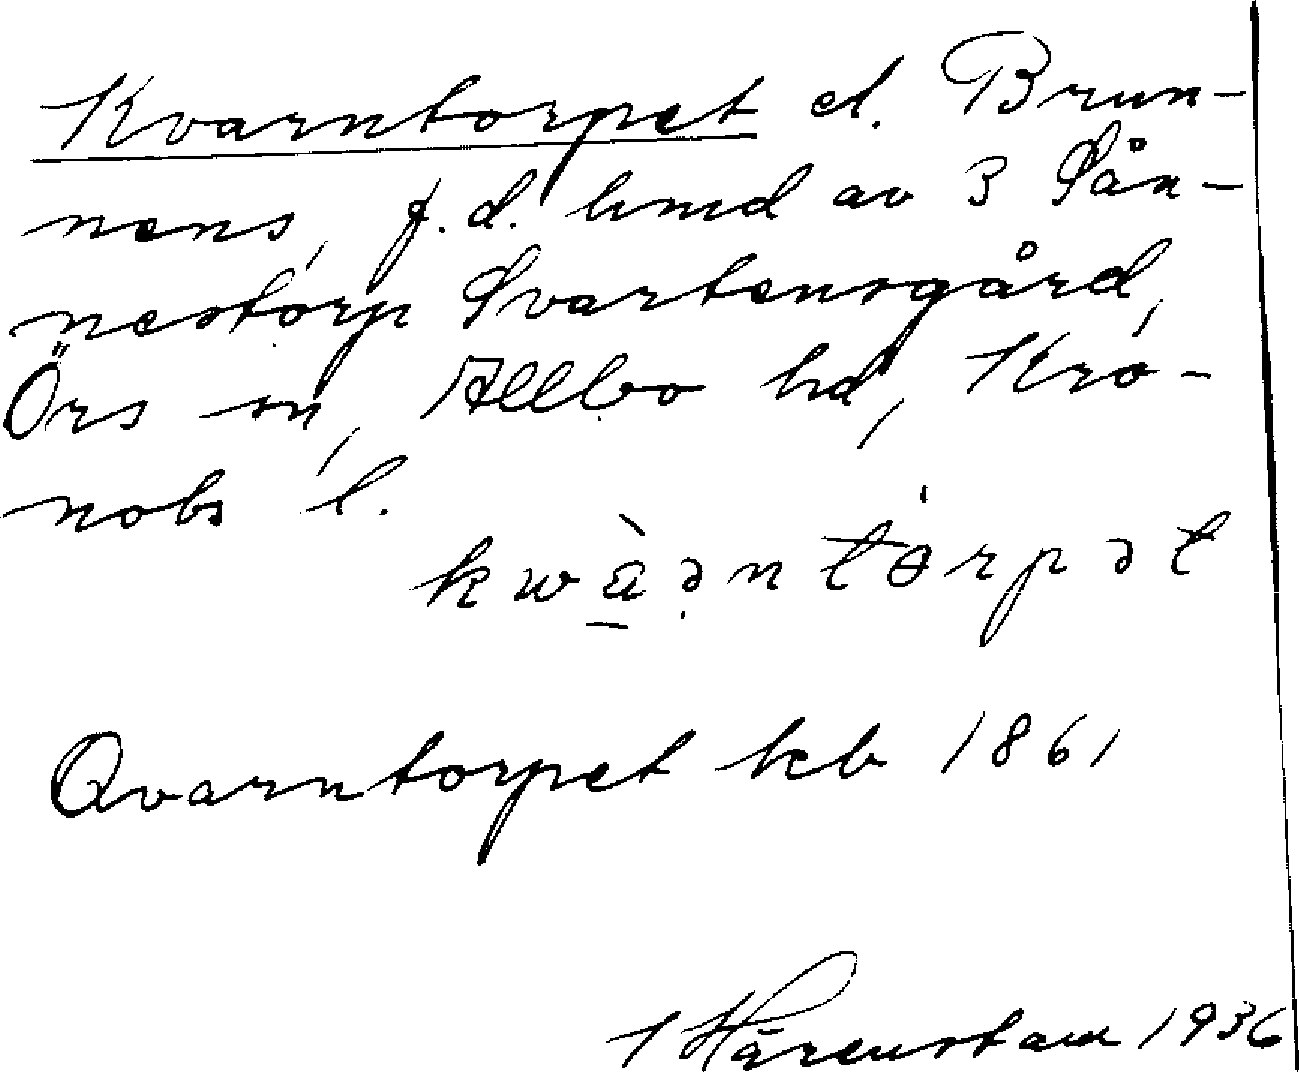 Kvarntorpet el. Brun-
nens, f.d. lmd av 3 Sån-
nestorp Svartensgård,
Örs sn, Allbo hd, Kro-
nobs l.
kwàrntorpət
Qvarntorpet kb 1861
Härenstam 1936